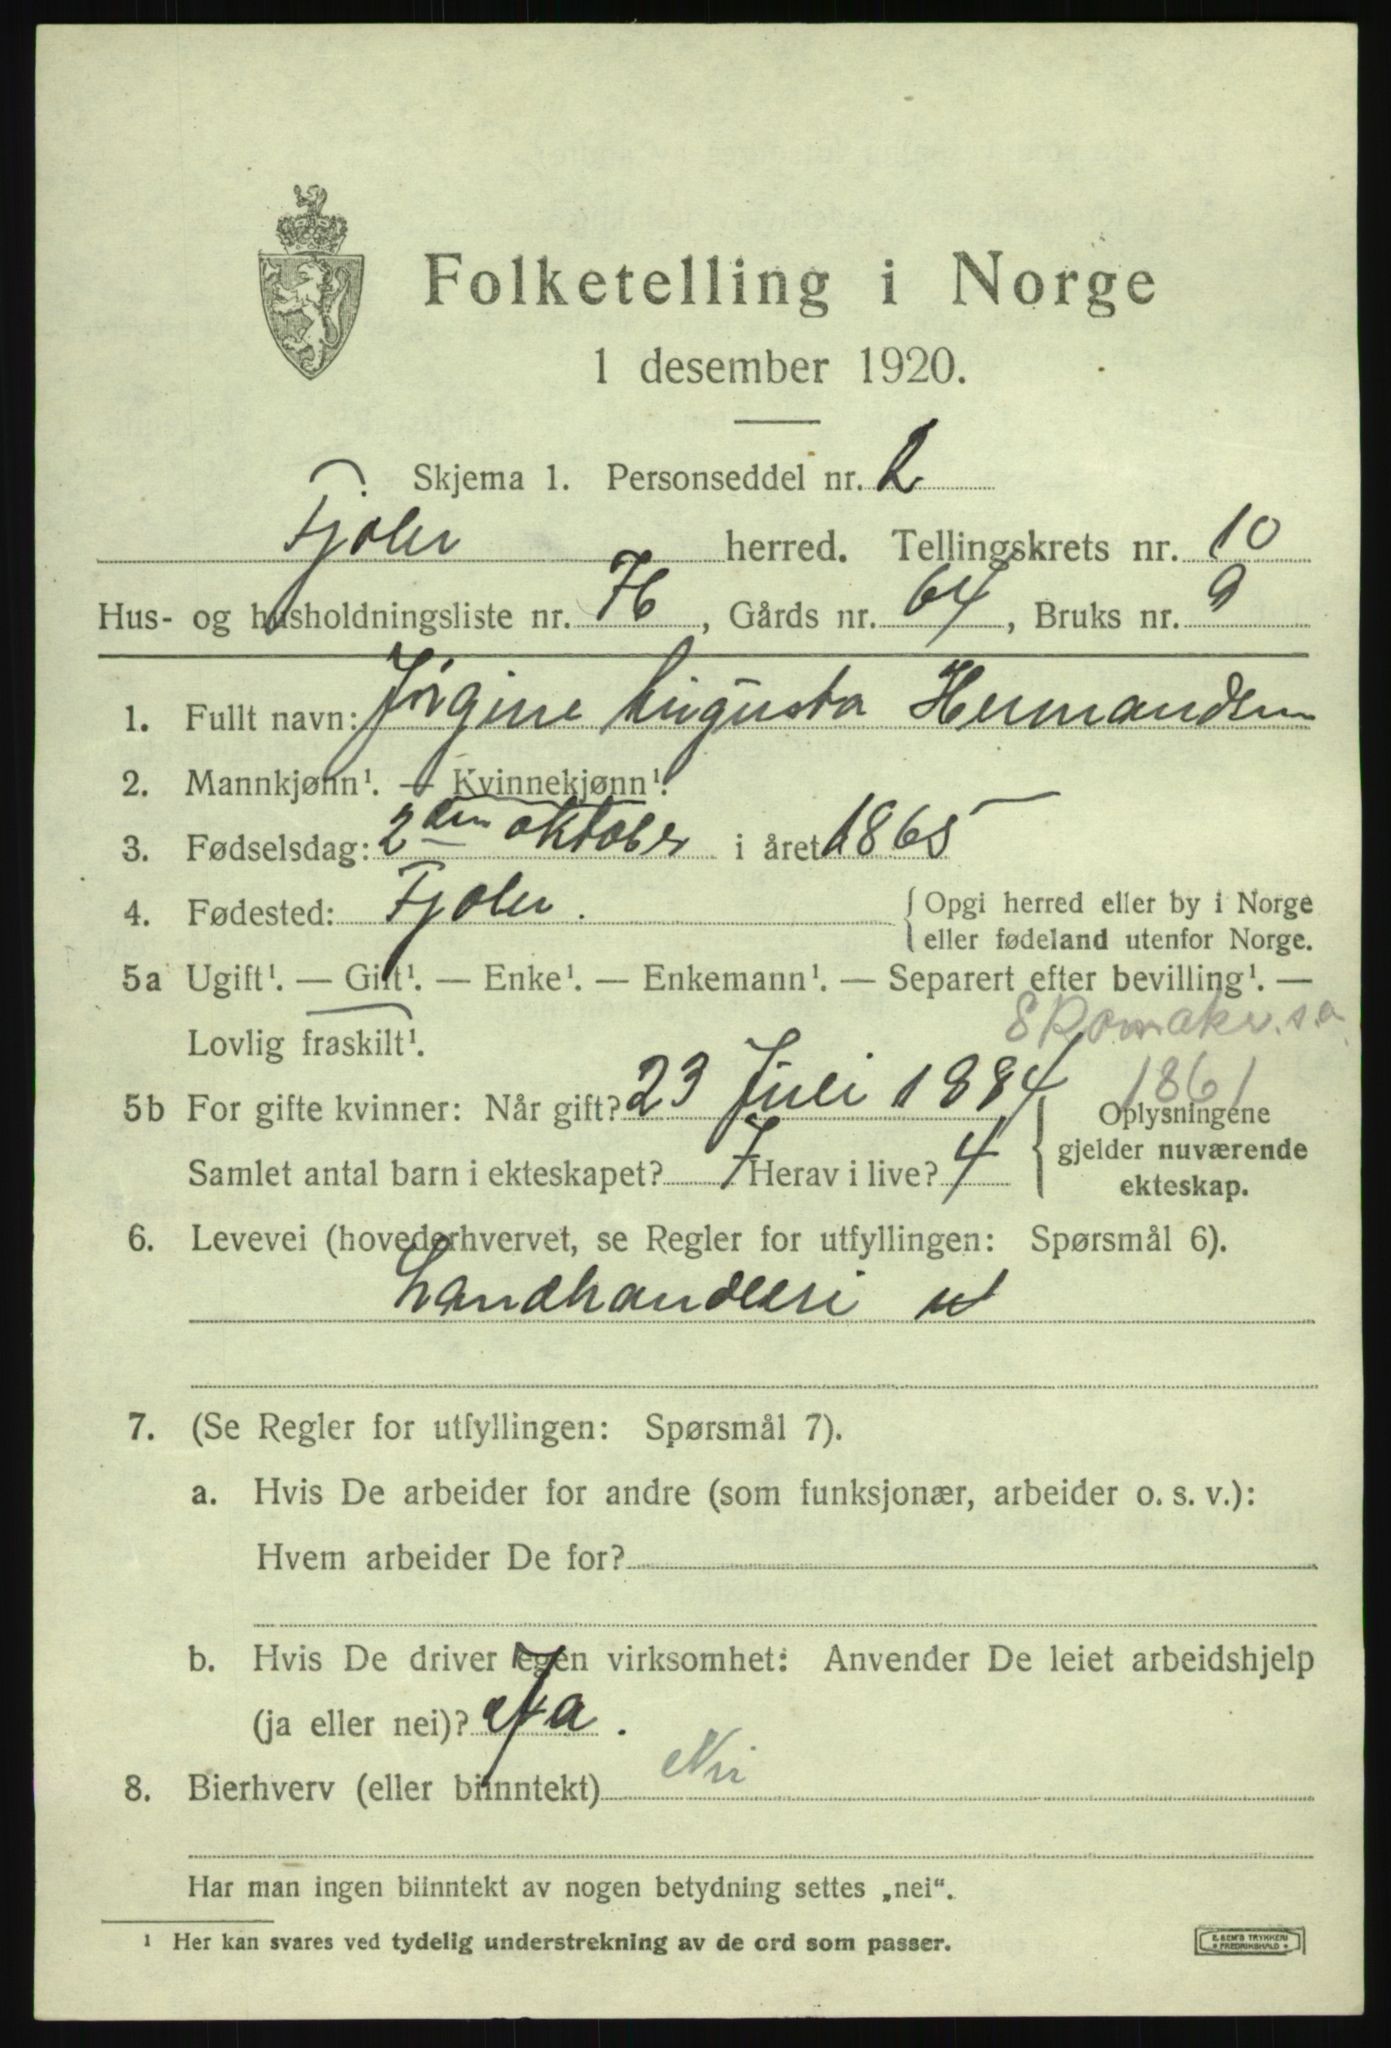 Folketelling i Norge
1 desember 1920.
Skjema 1. Personseddel nr. 2
Fjaler herred. Tellingskrets nr. 10
Hus- og husholdningsliste nr. 76, Gårds nr. 64, Bruks nr. 9
1. Fullt navn: Jørgine Augusta Hermandsen
2. Mannkjønn¹. — Kvinnekjønn¹.
3. Fødselsdag: 2den oktober i året 1865
4. Fødested: Fjaler. { Opgi herred eller by i Norge
eller fødeland utenfor Norge.
5a Ugift¹. — Gift¹. — Enke¹. — Enkemann¹. — Separert efter bevilling¹. —
Lovlig fraskilt¹.
Skomaker s.a.
1861
5b For gifte kvinner: Når gift? 23 Juli 1884
Samlet antal barn i ekteskapet? 7 Herav i live? 4
Oplysningene
gjelder nuværende
ekteskap.
6. Levevei (hovederhvervet, se Regler for utfyllingen: Spørsmål 6).
Landhandleri
7. (Se Regler for utfyllingen: Spørsmål 7).
a. Hvis De arbeider for andre (som funksjonær, arbeider o. s. v.):
Hvem arbeider De for?
b. Hvis De driver egen virksomhet: Anvender De leiet arbeidshjelp
(ja eller nei)? Ja.
8. Bierhverv (eller biinntekt) Nei
Har man ingen biinntekt av nogen betydning settes „nei“.
¹ Her kan svares ved tydelig understrekning av de ord som passer.
E. SEM'S TRYKKERI
FREDRIKSHALD